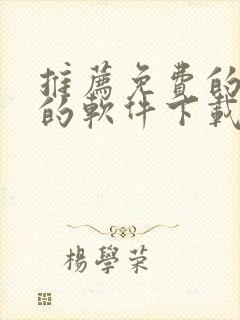 推薦免費的
的軟件下載
楊學榮